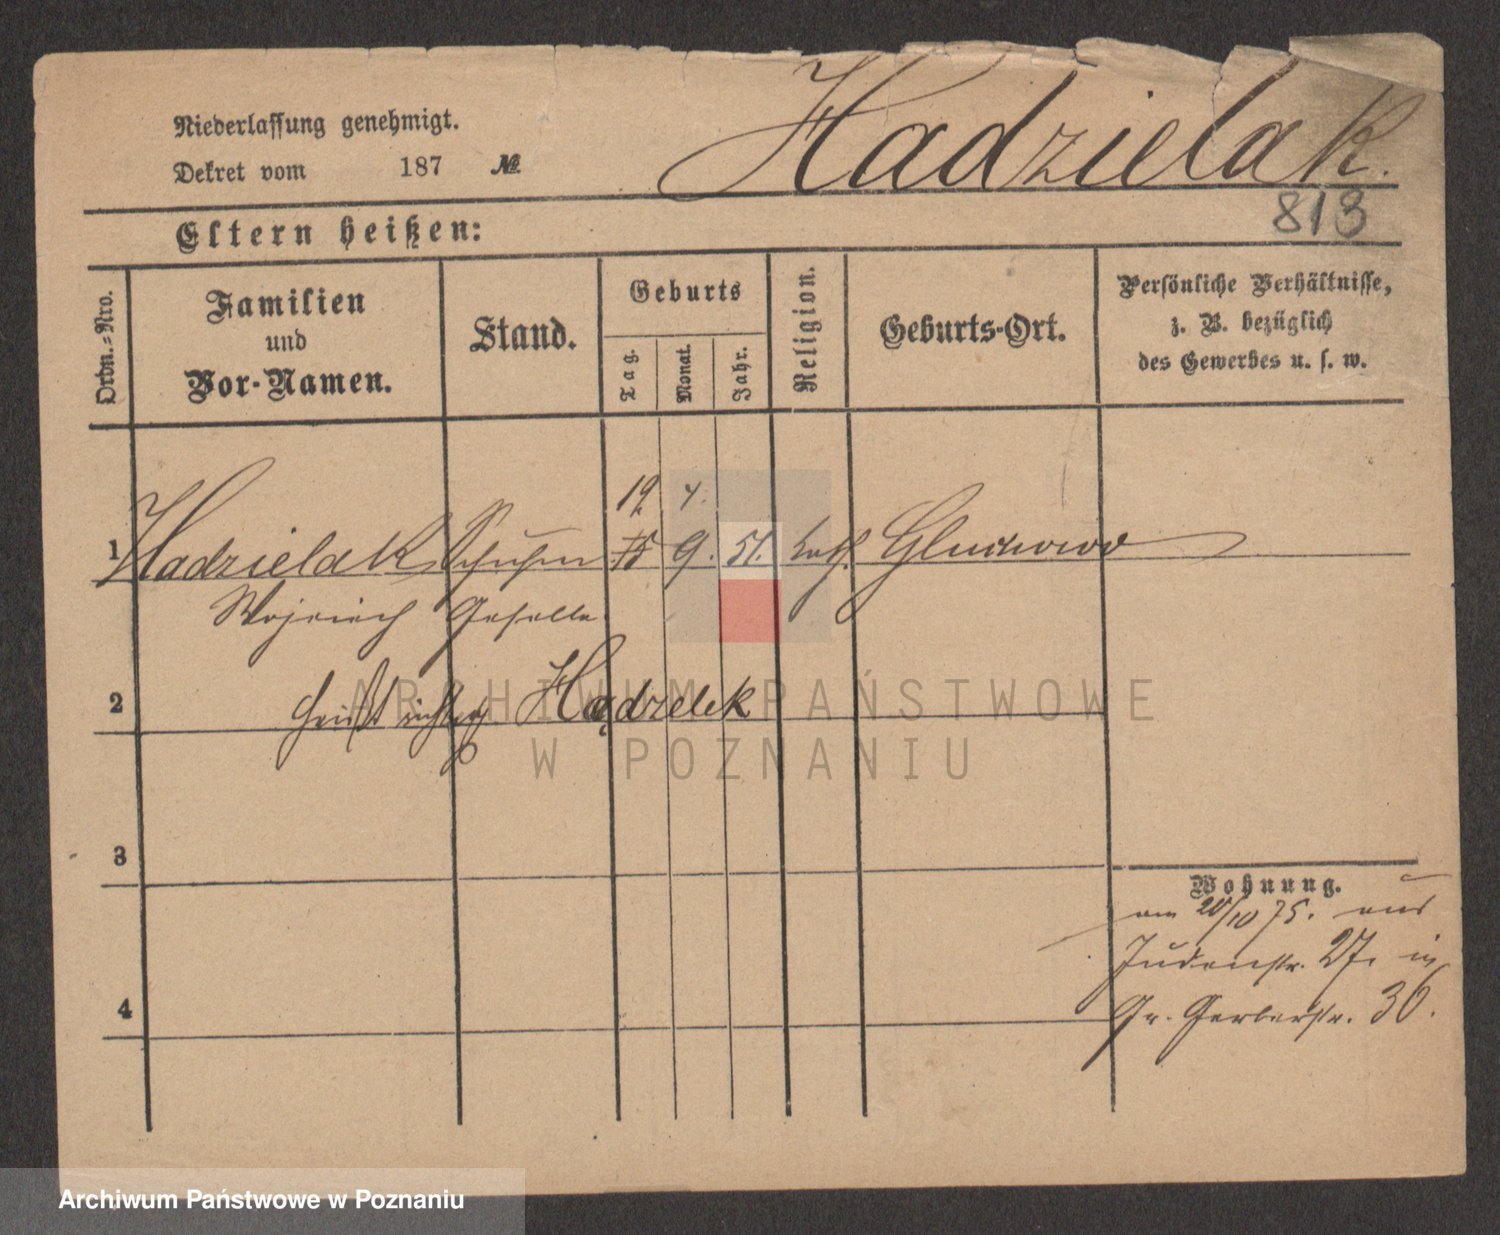 Niederlassung genehmigt.
Dekret vom 187 №
Hadzielak.
813
Eltern heißen:
Ordn.-Nro.
Familien
und
Vor-Namen.
Stand.
Geburts
Tag.
Monat.
Jahr.
Religion.
Geburts-Ort.
Persönliche Verhältnisse,
z. B. bezüglich
des Gewerbes u. s. w.
19 4.
1 Hadzielak Schuhm 15 9. 51. kath. Gluchowo
Wojciech Geselle
2 heißt richtig Hądzelek
3
Wohnung.
am 20/10 75. aus
Judenstr. 27. in
4 Gr. Gerberstr. 36.
ARCHIWUM PAŃSTWOWE
W POZNANIU
Archiwum Państwowe w Poznaniu